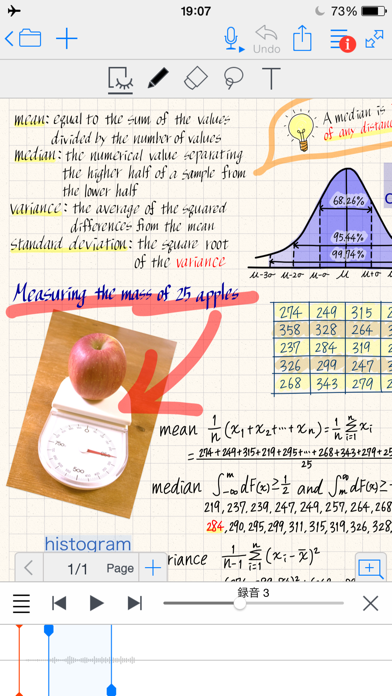 19:07
73%
Undo
T
mean: equal to the sum of the values
divided by the number of values
median: the numerical value separating
the higher half of a sample from
the lower half
variance: the average of the squared
differences from the mean
standard deviation: the square root
of the variance
A median is
of any distan
68.26%
95.44%
99.74%
μ-3σ μ-2σ μ-σ μ μ+σ
Measuring the mass of 25 apples
274 249 315 2
358 328 264 3
237 284 319
326 299 247 3
268 343 279 2
mean 1/n (x₁+x₂+…+xₙ)=1/n Σⁿᵢ₌₁ xᵢ
= 274+249+315+219+295+…+268+343+279+25
25
median ∫ᵐ₋∞ dF(x)≥1/2 and ∫∞ₘ dF(x)≥
219, 237, 239, 247, 249, 257, 264, 268
284, 290, 295, 299, 311, 315, 319, 326, 328,
histogram
riance 1/n-1 Σⁿᵢ₌₁ (xᵢ-x̄)²
1/1 Page
録音 3